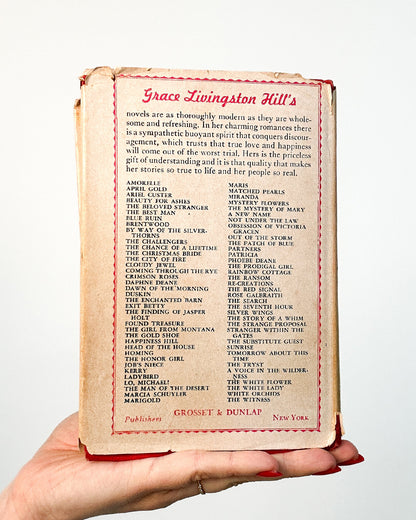 Grace Livingston Hill's
novels are as thoroughly modern as they are whole-
some and refreshing. In her charming romances there
is a sympathetic buoyant spirit that conquers discour-
agement, which trusts that true love and happiness
will come out of the worst trial. Hers is the priceless
gift of understanding and it is that quality that makes
her stories so true to life and her people so real.
AMORELLE
APRIL GOLD
ARIEL CUSTER
BEAUTY FOR ASHES
THE BELOVED STRANGER
THE BEST MAN
BLUE RUIN
BRENTWOOD
BY WAY OF THE SILVER-
THORNS
THE CHALLENGERS
THE CHANCE OF A LIFETIME
THE CHRISTMAS BRIDE
THE CITY OF FIRE
CLOUDY JEWEL
COMING THROUGH THE RYE
CRIMSON ROSES
DAPHNE DEANE
DAWN OF THE MORNING
DUSKIN
THE ENCHANTED BARN
EXIT BETTY
THE FINDING OF JASPER
HOLT
FOUND TREASURE
THE GIRL FROM MONTANA
THE GOLD SHOE
HAPPINESS HILL
HEAD OF THE HOUSE
HOMING
THE HONOR GIRL
JOB'S NIECE
KERRY
LADYBIRD
LO, MICHAEL!
THE MAN OF THE DESERT
MARCIA SCHUYLER
MARIGOLD
MARIS
MATCHED PEARLS
MIRANDA
MYSTERY FLOWERS
THE MYSTERY OF MARY
A NEW NAME
NOT UNDER THE LAW
OBSESSION OF VICTORIA
GRACEN
OUT OF THE STORM
THE PATCH OF BLUE
PARTNERS
PATRICIA
PHOEBE DEANE
THE PRODIGAL GIRL
RAINBOW COTTAGE
THE RANSOM
RE-CREATIONS
THE RED SIGNAL
ROSE GALBRAITH
THE SEARCH
THE SEVENTH HOUR
SILVER WINGS
THE STORY OF A WHIM
THE STRANGE PROPOSAL
STRANGER WITHIN THE
GATES
THE SUBSTITUTE GUEST
SUNRISE
TOMORROW ABOUT THIS
TIME
THE TRYST
A VOICE IN THE WILDER-
NESS
THE WHITE FLOWER
THE WHITE LADY
WHITE ORCHIDS
THE WITNESS
GROSSET & DUNLAP
Publishers NEW YORK